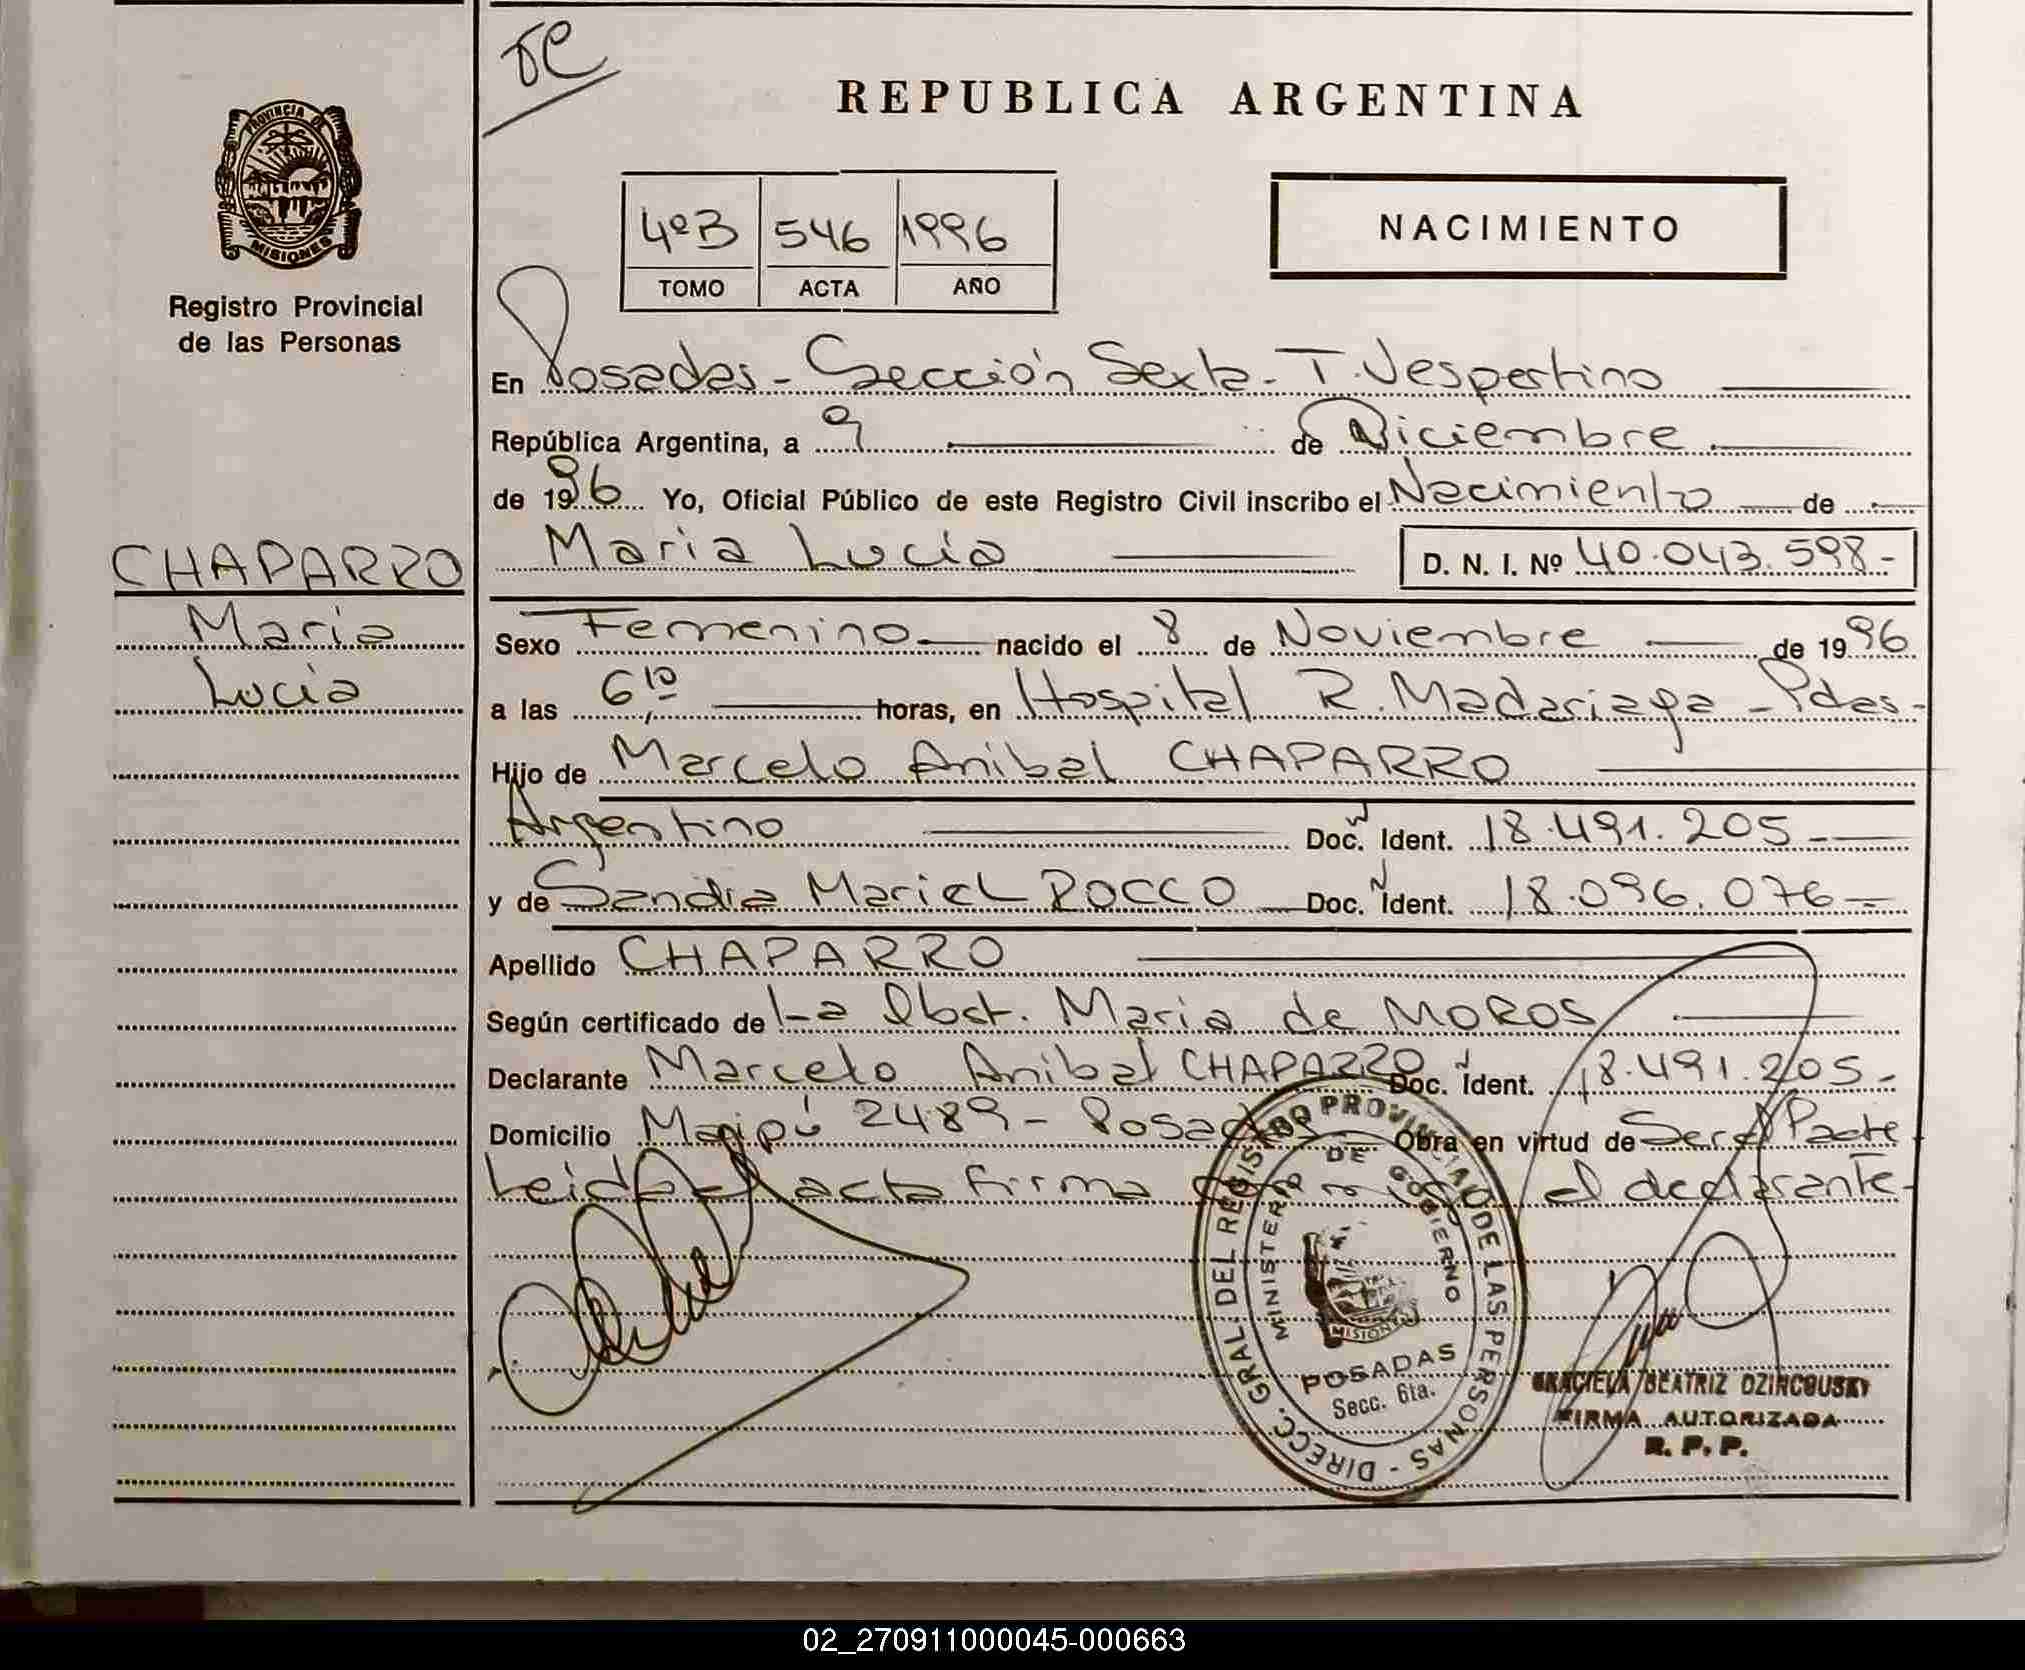 REPUBLICA ARGENTINA
PROVINCIA DE
MISIONES
Registro Provincial
de las Personas
4ºB 546 1996
TOMO ACTA AÑO
NACIMIENTO
En Posadas - Sección Sexta - T. Vespertino
República Argentina, a 9 de Diciembre
de 1996 Yo, Oficial Público de este Registro Civil inscribo el Nacimiento de
Maria Lucía D. N. I. Nº 40.043.598-
CHAPARRO
Maria
Lucía
Sexo Femenino nacido el 8 de Noviembre de 1996
a las 6,10 horas, en Hospital R. Madariaga - Pdas-
Hijo de Marcelo Anibal CHAPARRO
Argentino Doc. Ident. 18.491.205
y de Sandra Mariel ROCCO Doc. Ident. 18.096.076
Apellido CHAPARRO
Según certificado de La Obst. Maria de MOROS
Declarante Marcelo Anibal CHAPARRO Doc. Ident. 18.491.205-
Domicilio Maipú 2489 - Posadas Obra en virtud de Ser Parte
Leida el acta firma el declarante-
DIRECC. GRAL. DEL REGISTRO PROVINCIAL DE LAS PERSONAS -
MINISTERIO DE GOBIERNO
MISIONES
POSADAS
Secc. 6ta.
GRACIELA BEATRIZ DZIRCOUSKY
FIRMA AUTORIZADA
R. P. P.
02_270911000045-000663